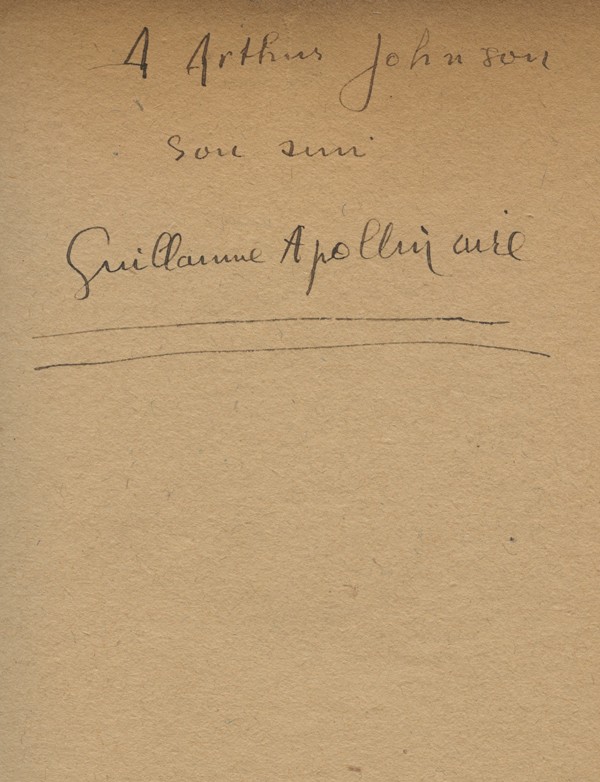 A Arthur Johnson
son ami
Guillaume Apollinaire